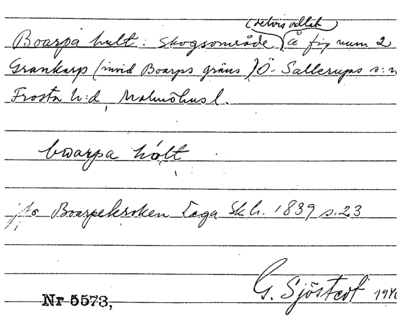 (delvis odlat)
Boarpa hult: skogsområde å fig num 2
Grankarp (invid Boarps gräns) Ö. Sallerups s:n
Frosta h:d, Malmöhus l.
boarpa hölt
jfr Boarpekroken Laga Sk h. 1839 s. 23
G. Sjöstedt 194
Nr 5573,